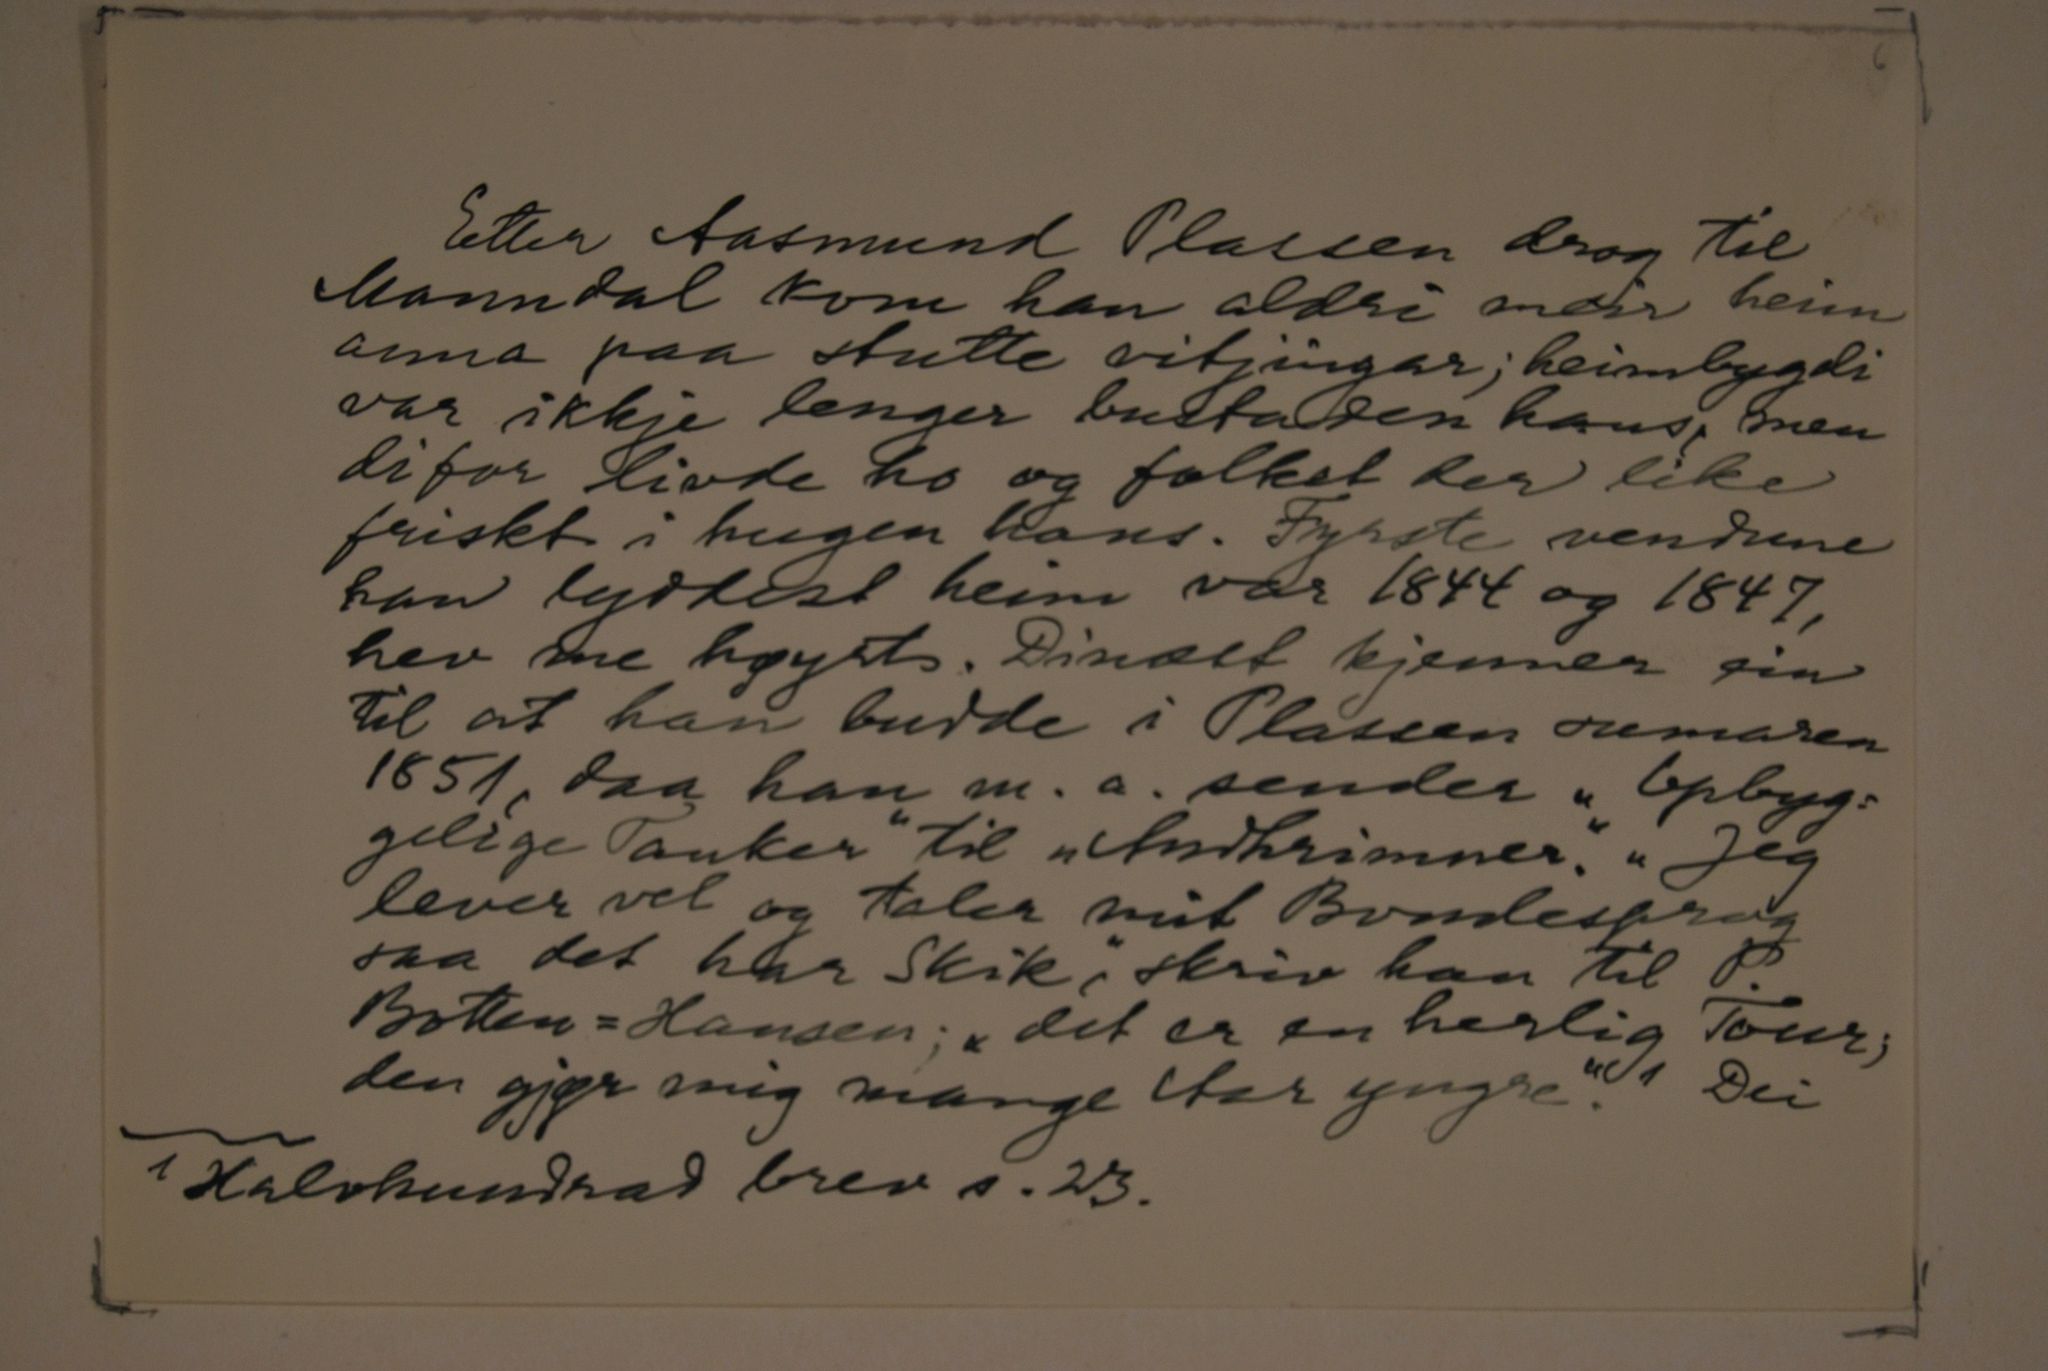 6
Etter Aasmund Plassen drog til
Manndal kom han aldri meir heim
anna paa stutte vitjingar; heimbygdi
var ikkje lenger bustaden hans, men
difor livde ho og folket der like
friskt i hugen hans. Fyrste vendune
han lyddest heim var 1844 og 1847,
hev me høyrt. Dinæst kjenner ein
til at han budde i Plassen sumaren
1851, daa han m. a. sender „Opbyg=
gelige Tanker“ til „Andhrimner“. „Jeg
lever vel og taler mit Bondesprog
saa det har Skik,“ skriv han til P.
Botten=Hansen; „det er en herlig Tour;
den gjør mig mange Aar yngre“.¹ Dei
¹ Halvhundrad brev s. 23.